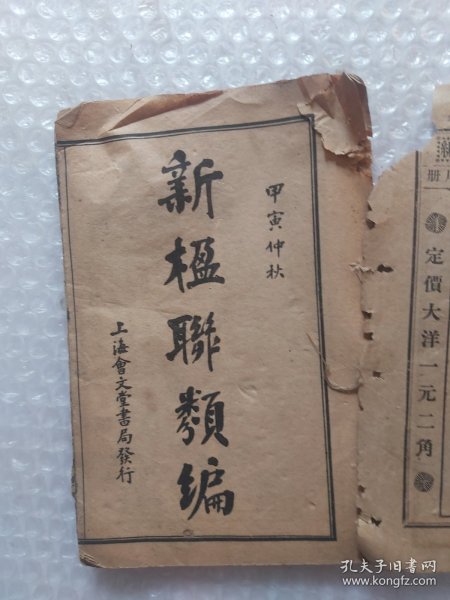 甲寅仲秋
新楹聯類編
上海會文堂書局發行
册
定價大洋一元二角
孔夫子旧书网
www.kongfz.com